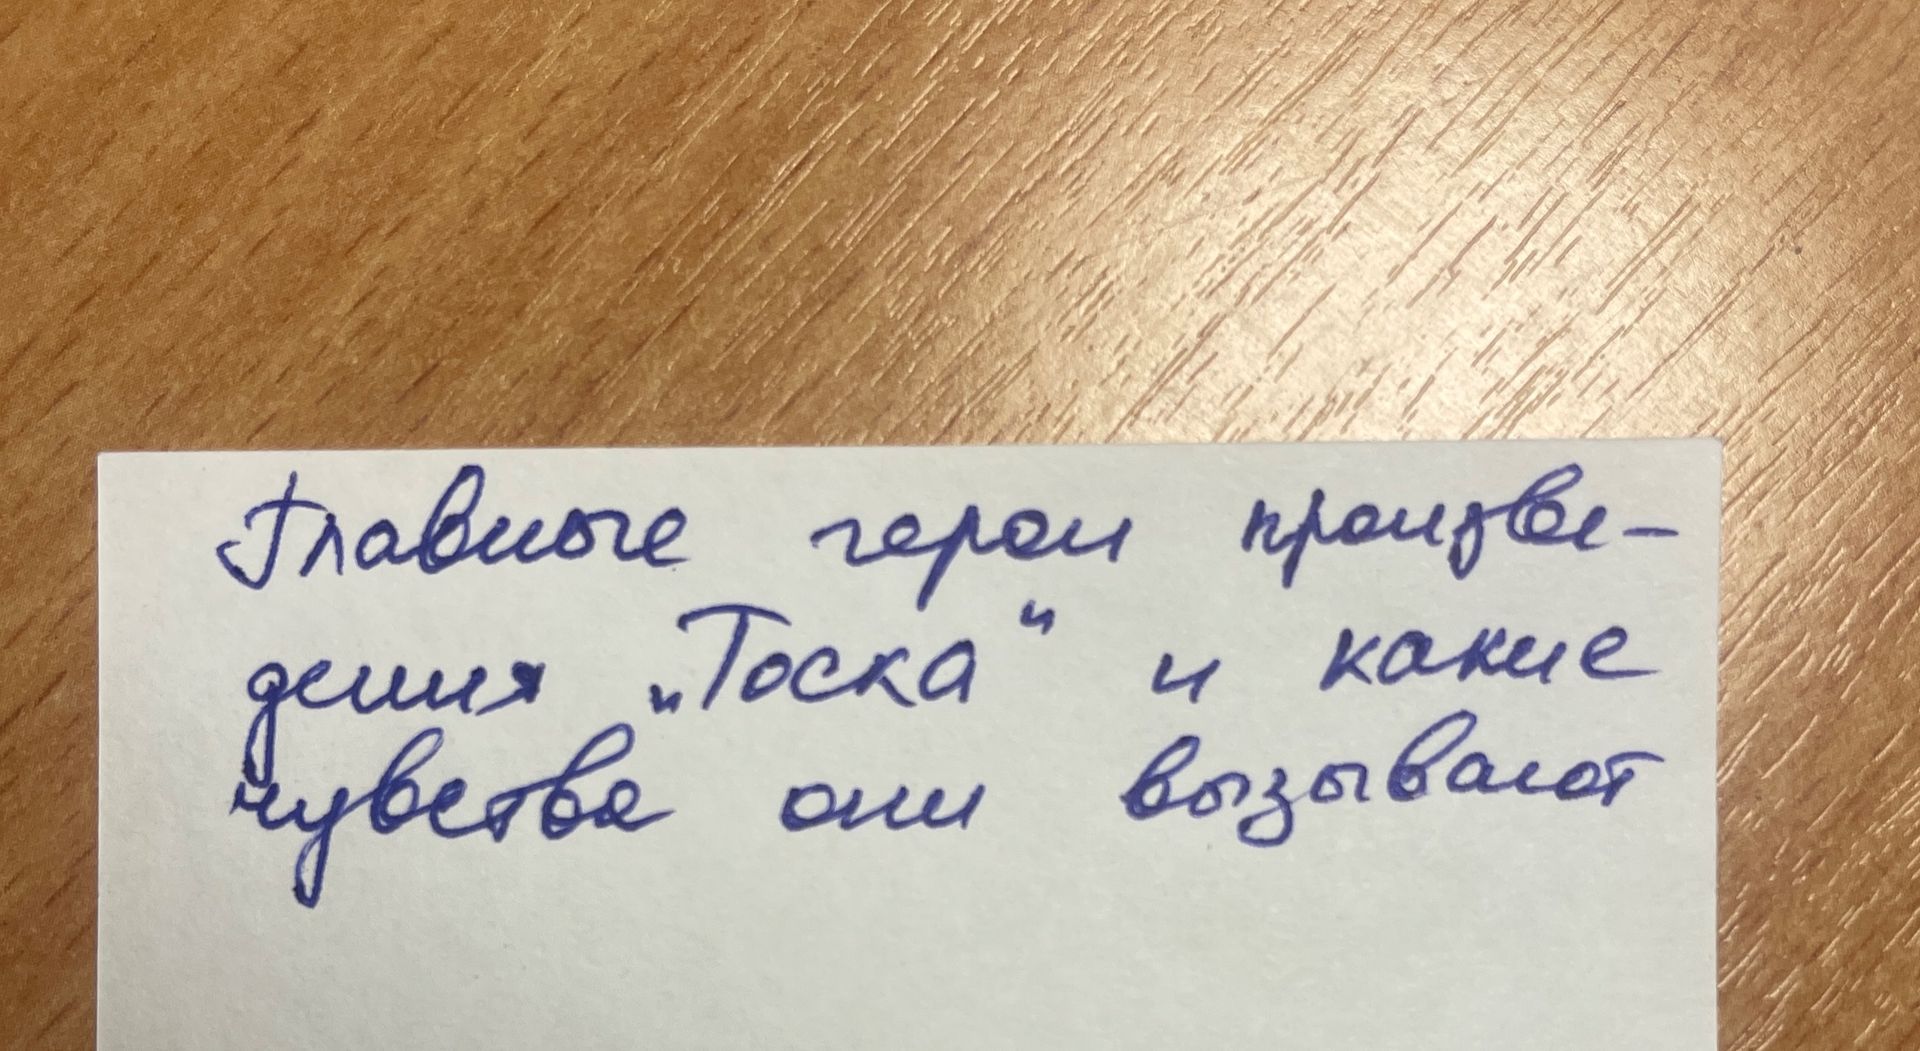 Главные герои произве-
дения „Тоска“ и какие
чувства они вызывают